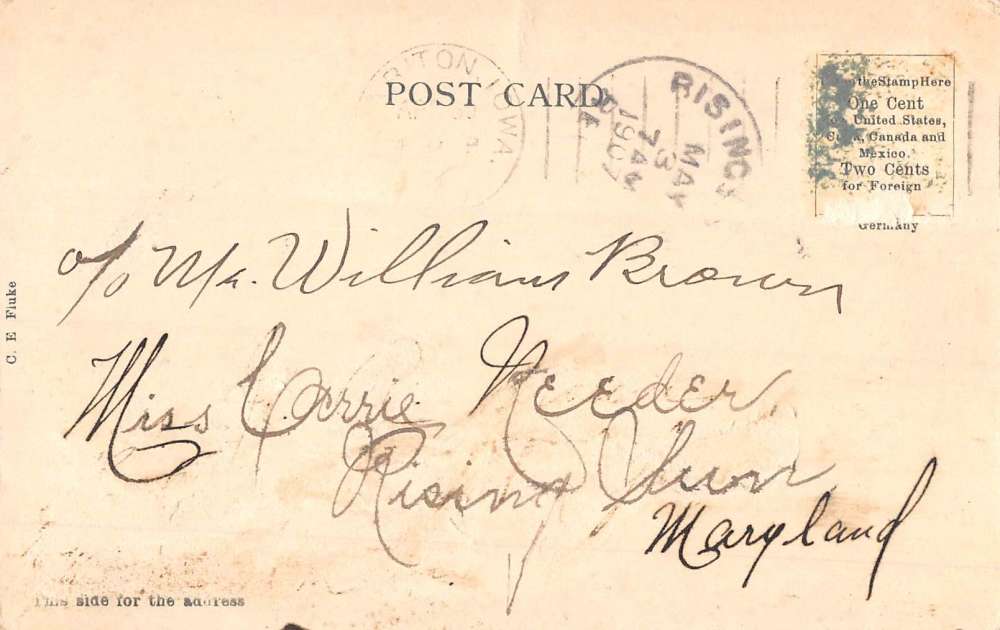 POST CARD
RITON, IOWA.
RISING
MAY
3
7 AM
1907
the Stamp Here
One Cent
United States,
Canada and
Mexico.
Two Cents
for Foreign
Germany
c/o Mr. William Brown
Miss Carrie Reeder
Rising Sun
Maryland
C. E Fluke
This side for the address